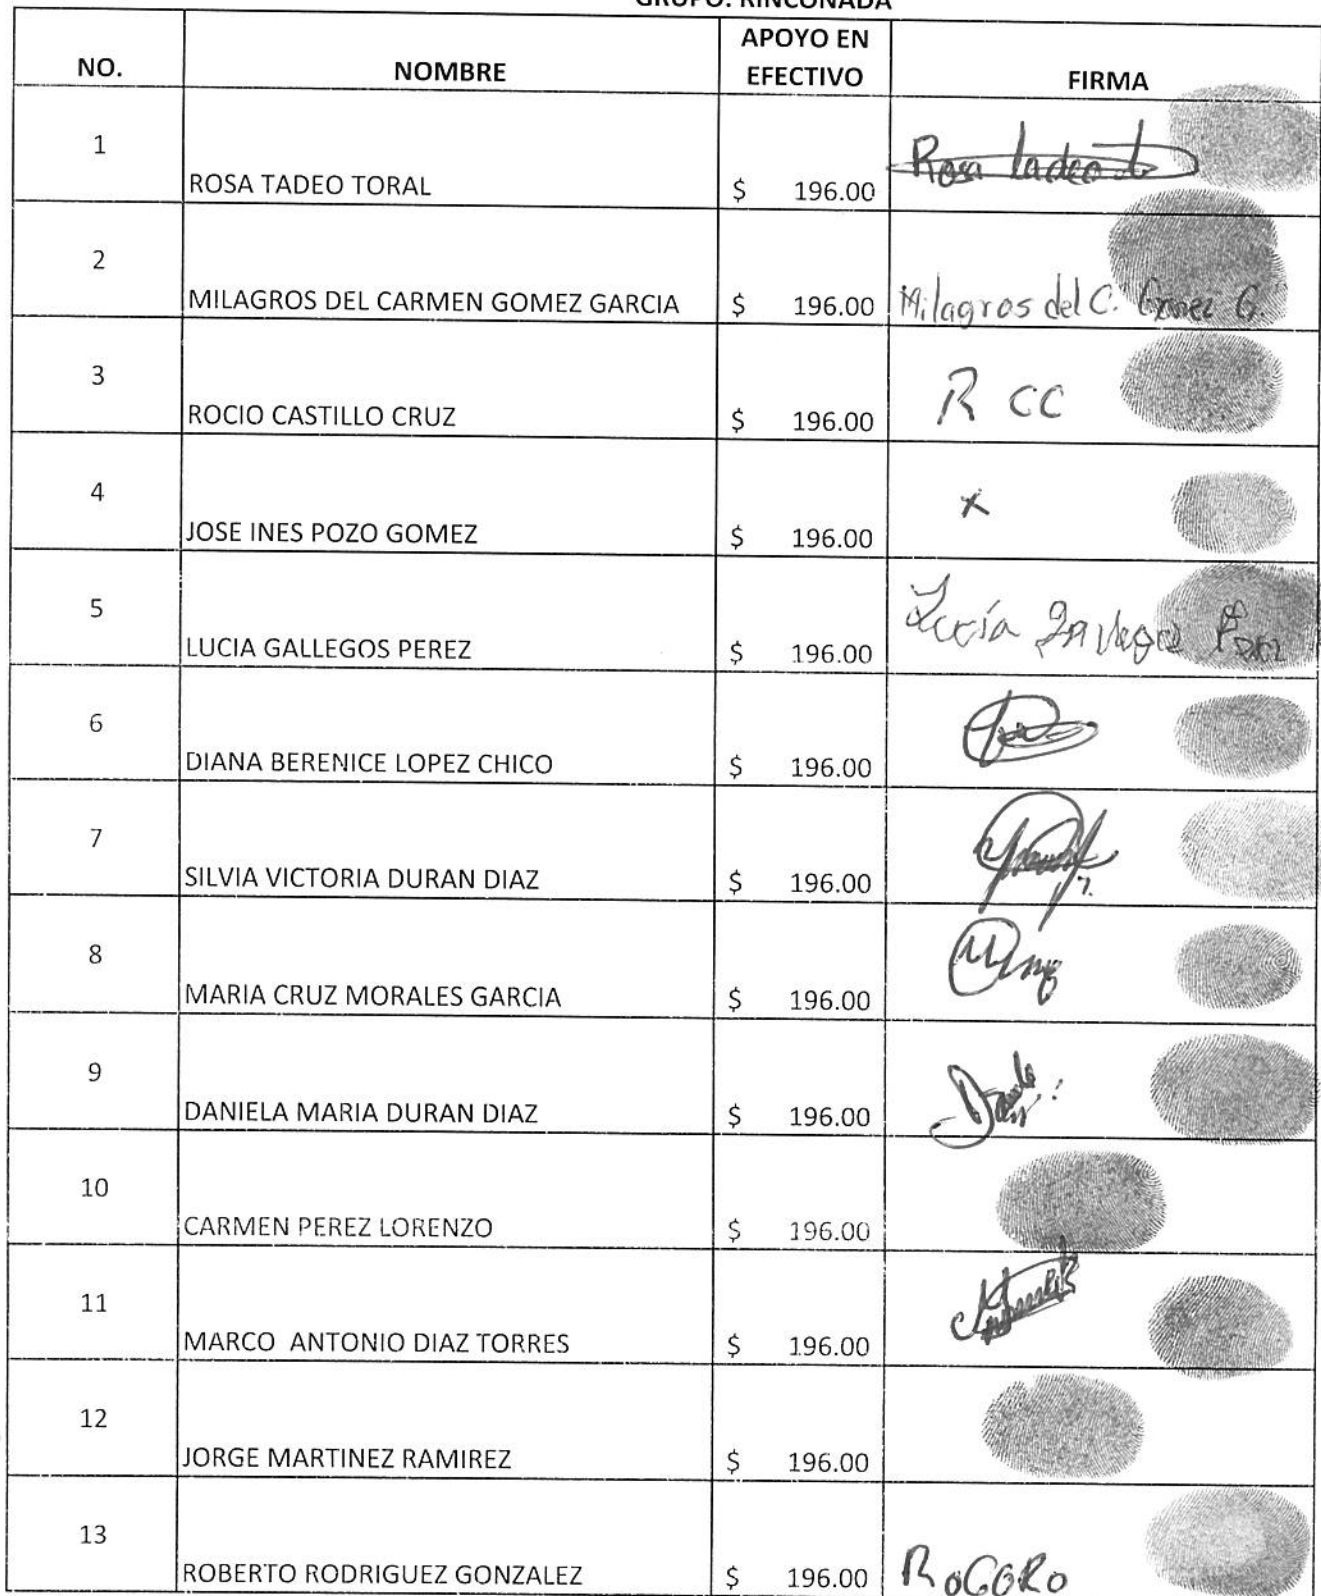 GRUPO: RINCONADA
NO. NOMBRE APOYO EN EFECTIVO FIRMA
1 ROSA TADEO TORAL $ 196.00 Rosa tadeo t
2 MILAGROS DEL CARMEN GOMEZ GARCIA $ 196.00 Milagros del C. Gomez G.
3 ROCIO CASTILLO CRUZ $ 196.00 R CC
4 JOSE INES POZO GOMEZ $ 196.00 x
5 LUCIA GALLEGOS PEREZ $ 196.00 Lucía
6 DIANA BERENICE LOPEZ CHICO $ 196.00
7 SILVIA VICTORIA DURAN DIAZ $ 196.00
8 MARIA CRUZ MORALES GARCIA $ 196.00
9 DANIELA MARIA DURAN DIAZ $ 196.00
10 CARMEN PEREZ LORENZO $ 196.00
11 MARCO ANTONIO DIAZ TORRES $ 196.00
12 JORGE MARTINEZ RAMIREZ $ 196.00
13 ROBERTO RODRIGUEZ GONZALEZ $ 196.00 RoGoRo